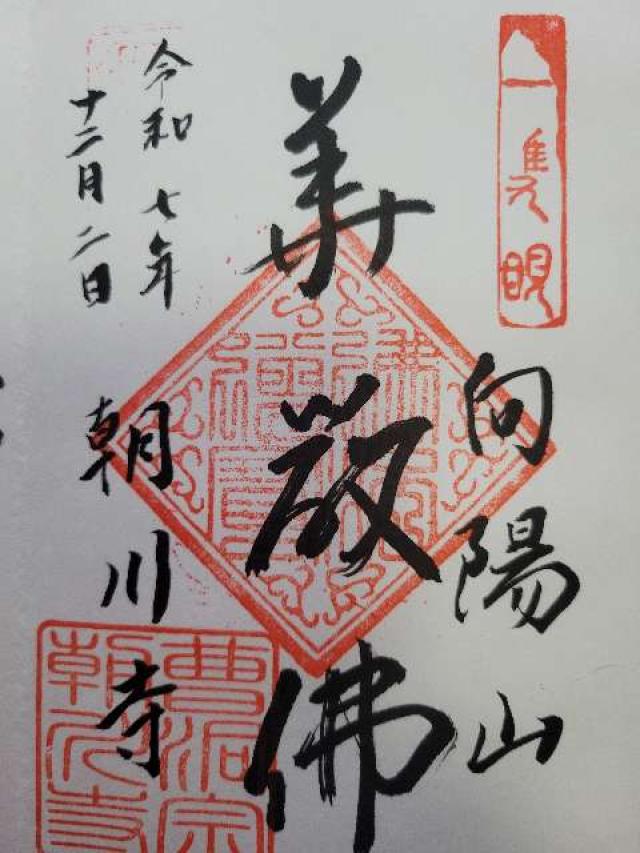 一隻眼
向陽山
華嚴佛
令和七年
十二月二日
朝川寺
曹洞宗
朝川寺